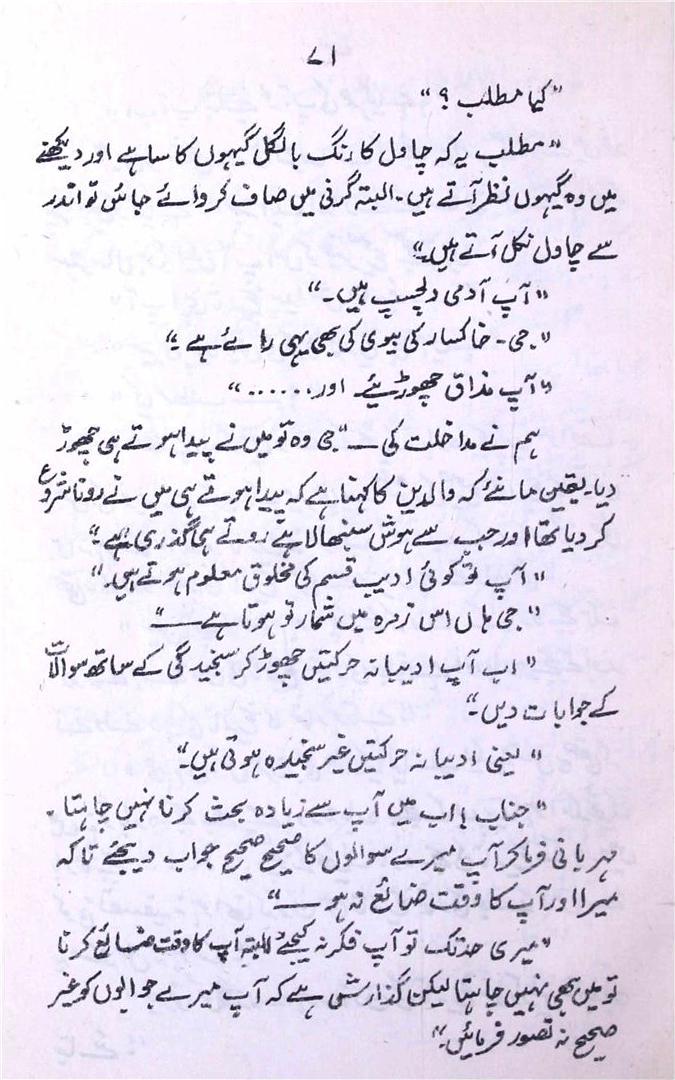 ۷۱
"کیا مطلب؟"
"مطلب یہ کہ چاول کا رنگ بالکل گیہوں کا سا ہے اور دیکھنے
میں وہ گیہوں نظر آتے ہیں۔ البتہ گرنی میں صاف کروائے جائیں تو اندر
سے چاول نکل آتے ہیں۔"
"آپ آدمی دلچسپ ہیں۔"
"جی۔ خاکسار کی بیوی کی بھی یہی رائے ہے۔"
"آپ مذاق چھوڑیئے اور......"
ہم نے مداخلت کی — "جی وہ تو میں نے پیدا ہوتے ہی چھوڑ
دیا۔ یقین مانئے کہ والدین کا کہنا ہے کہ پیدا ہوتے ہی میں نے رونا شروع
کر دیا تھا اور جب سے ہوش سنبھالا ہے روتے ہی گذری ہے۔"
"آپ تو کوئی ادیب قسم کی مخلوق معلوم ہوتے ہیں۔"
"جی ہاں اس زمرہ میں شمار تو ہوتا ہے —"
"اب آپ ادیبانہ حرکتیں چھوڑ کر سنجیدگی کے ساتھ سوالات
کے جوابات دیں۔"
"یعنی ادیبانہ حرکتیں غیر سنجیدہ ہوتی ہیں۔"
"جناب! اب میں آپ سے زیادہ بحث کرنا نہیں چاہتا۔
مہربانی فرما کر آپ میرے سوالوں کا صحیح صحیح جواب دیجئے تاکہ
میرا اور آپ کا وقت ضائع نہ ہو —"
"میری حد تک تو آپ فکر نہ کیجئے البتہ آپ کا وقت ضائع کرنا
تو میں بھی نہیں چاہتا لیکن گذارش ہے کہ آپ میرے جوابوں کو غیر
صحیح نہ تصور فرمائیں۔"